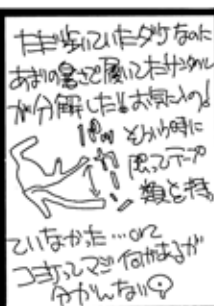 ただ歩いていたダケなのに
あまりの暑さで履いてたサンダル
が分解した!!お気に入りの!
そういう時に
限ってテープ
類を持っ
ていなかった…orz
コミケってマジ何があるか
分かんない